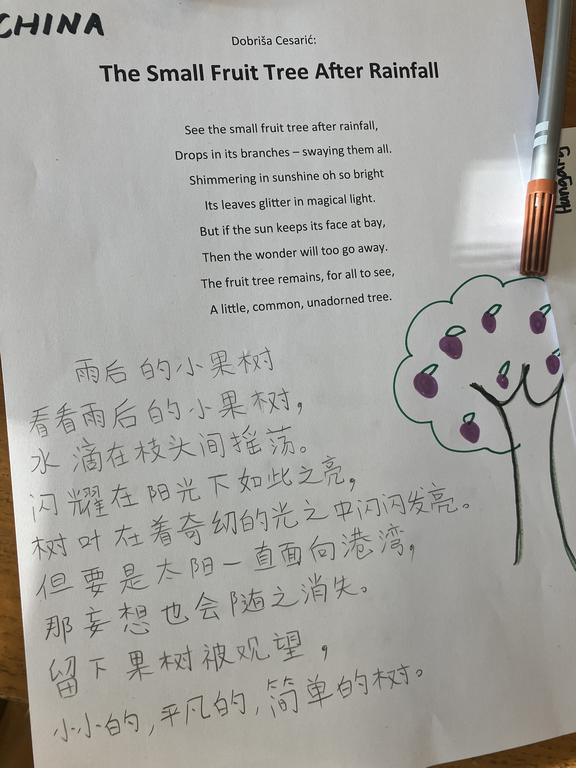 CHINA
Dobriša Cesarić:
The Small Fruit Tree After Rainfall
See the small fruit tree after rainfall,
Drops in its branches – swaying them all.
Shimmering in sunshine oh so bright
Its leaves glitter in magical light.
But if the sun keeps its face at bay,
Then the wonder will too go away.
The fruit tree remains, for all to see,
A little, common, unadorned tree.
雨后的小果树
看看雨后的小果树,
水滴在枝头间摇荡。
闪耀在阳光下如此之亮,
树叶在着奇幻的光之中闪闪发亮。
但要是太阳一直面向港湾,
那妄想也会随之消失。
留下果树被观望,
小小的,平凡的,简单的树。
Hungary